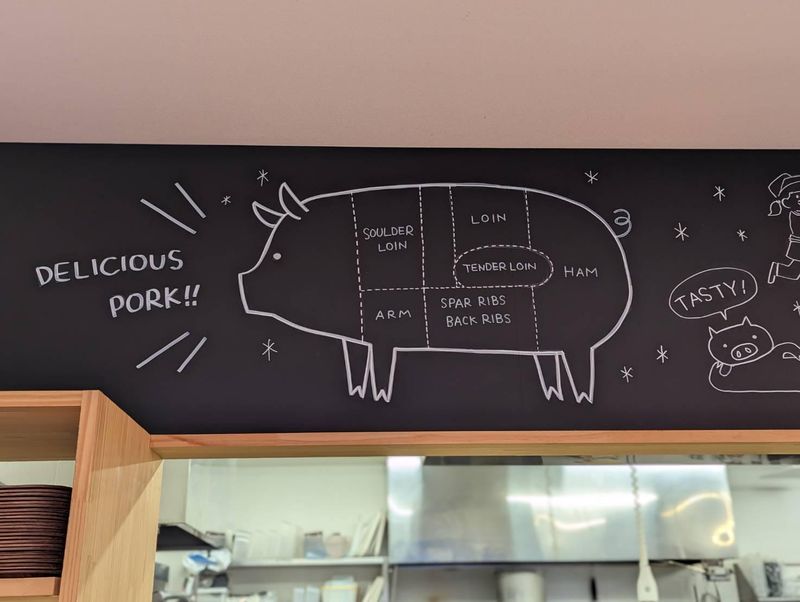 DELICIOUS
PORK!!
SOULDER
LOIN
LOIN
TENDER LOIN
HAM
ARM
SPAR RIBS
BACK RIBS
TASTY!